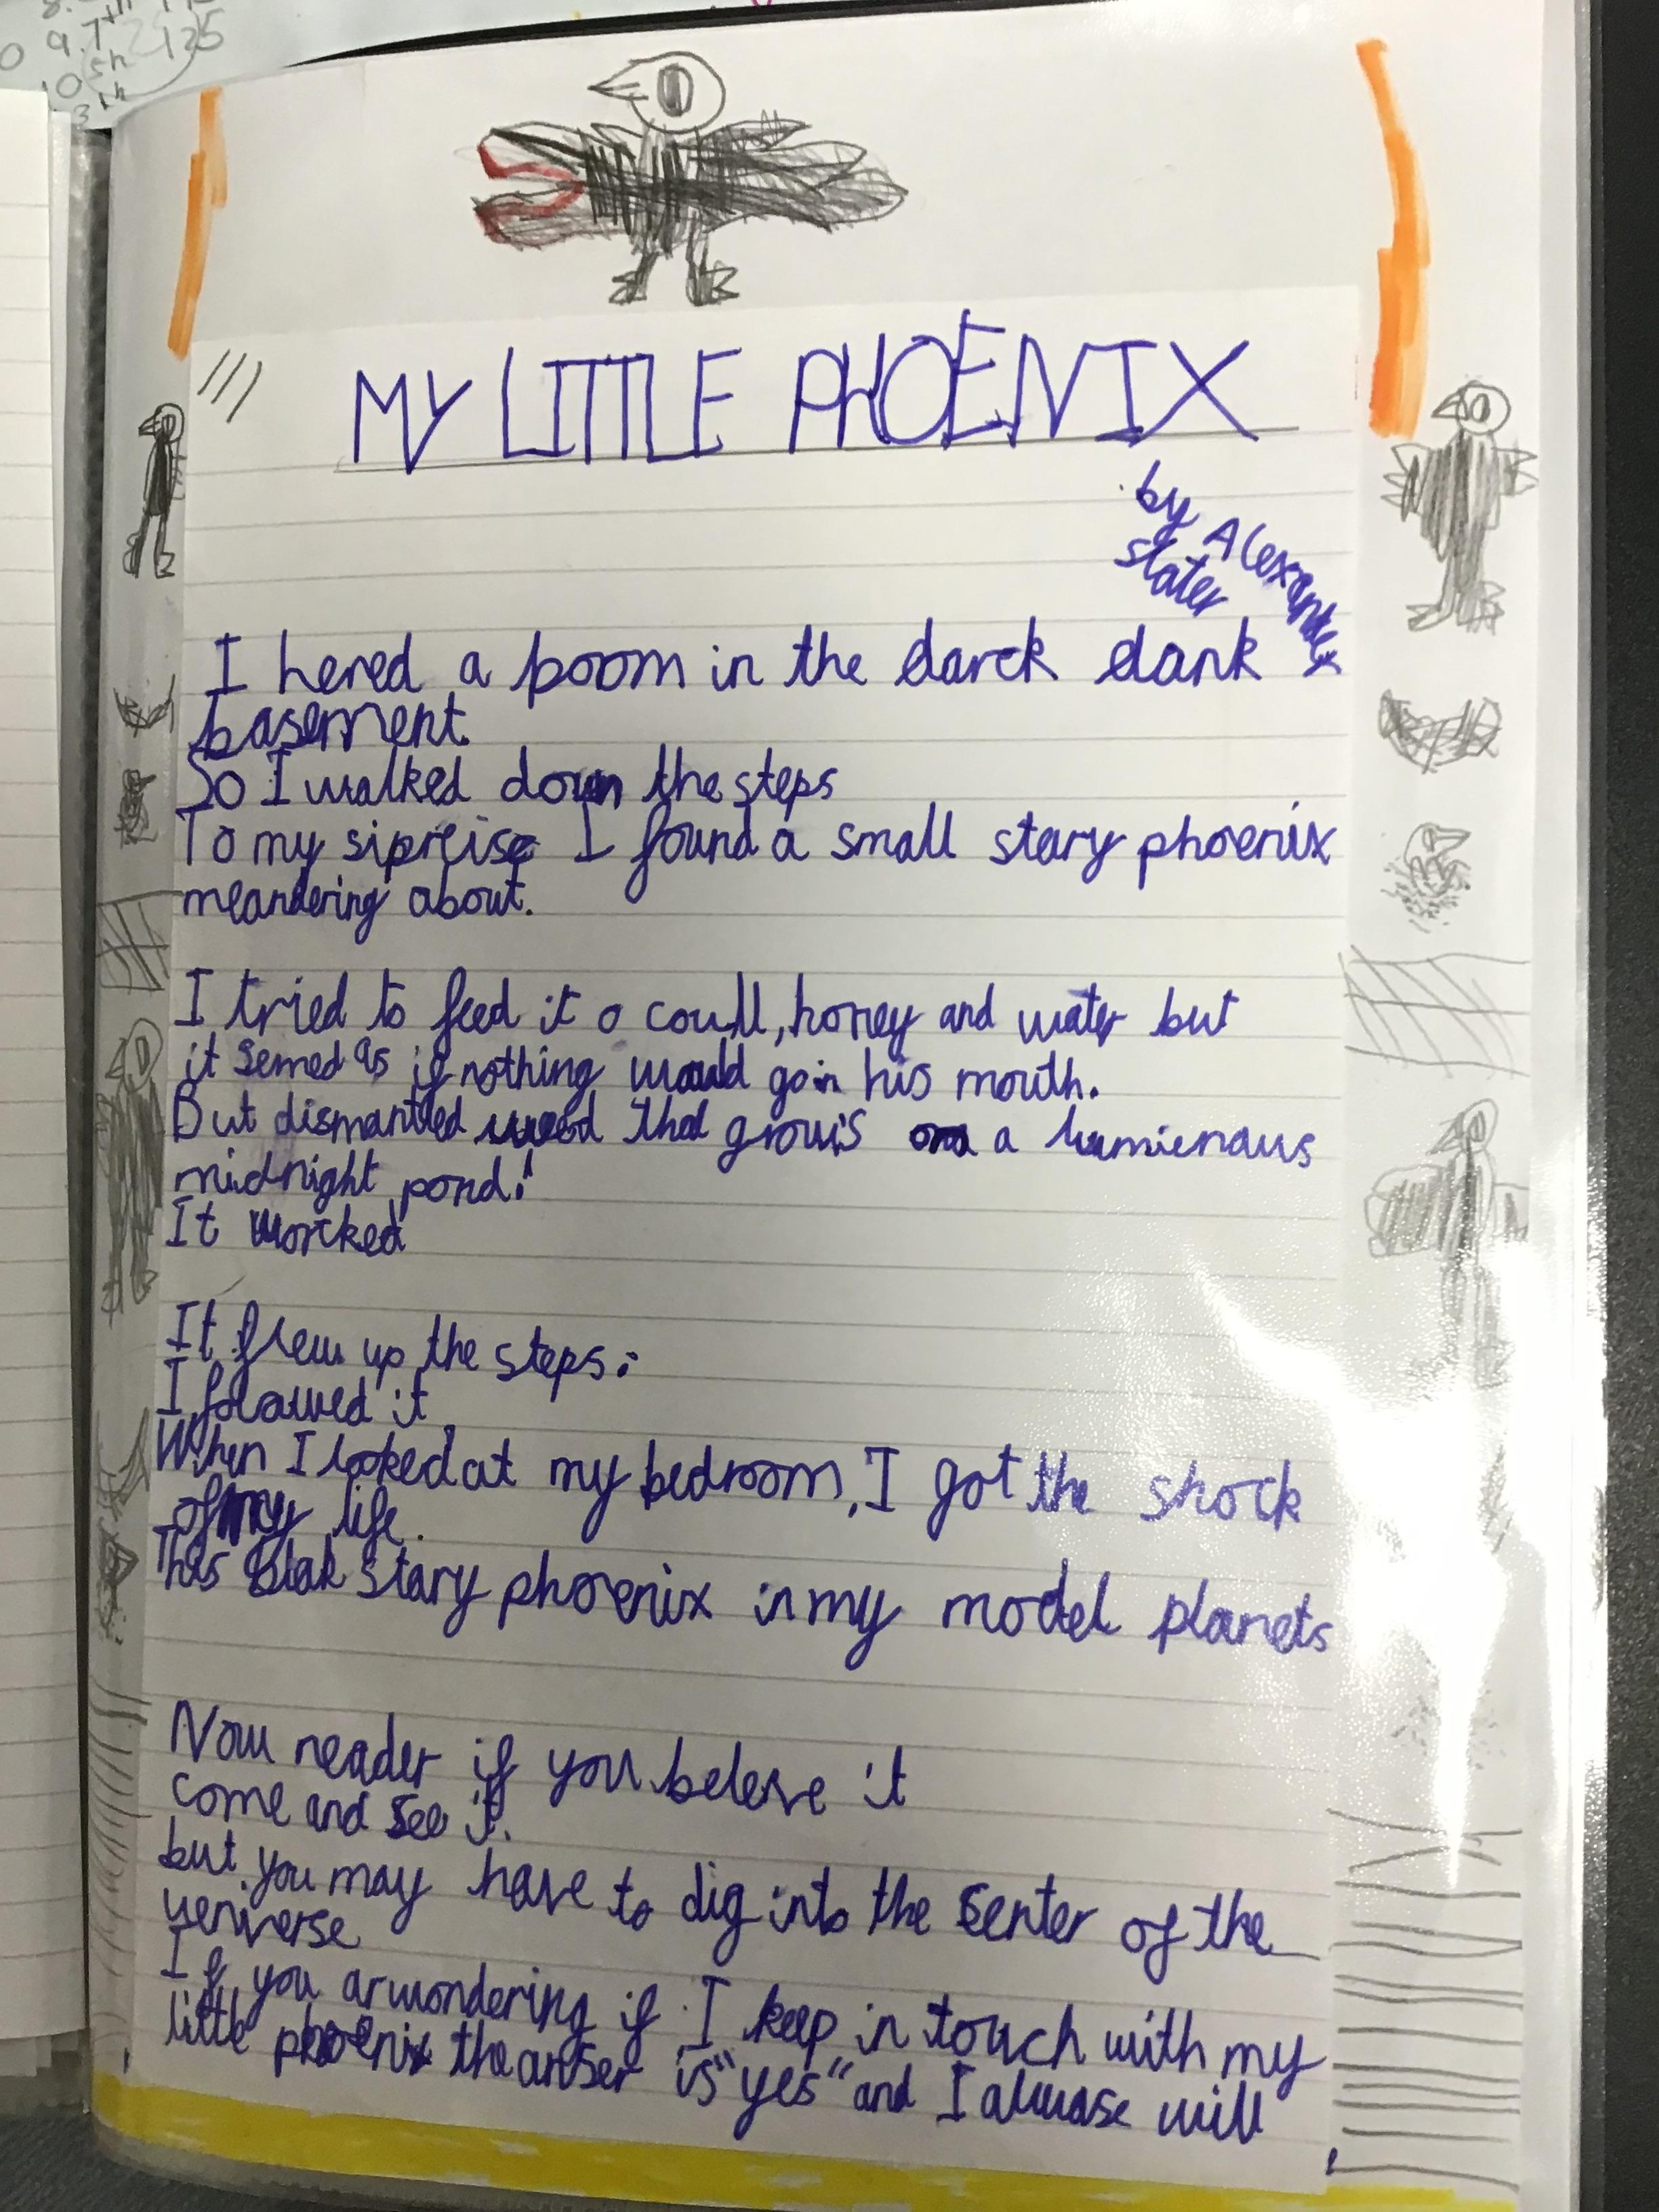 9.7th
125
10 5h
3th
MY LITTLE PHOENIX
by Alexander
slater
I hered a boom in the darck dank
basement.
So I walked down the steps
To my sipreise I found a small stary phoenix
meandering about.
I tried to feed it o coull, honey and water but
it semed as if nothing would go in his mouth.
But dismantled weed that grows on a lumienaus
midnight pond!
It worcked
It flew up the steps.
I folowed it
When I looked at my bedroom, I got the shock
of my life.
This blak stary phoenix in my model planets
Now reader if you beleve it
come and see it.
but you may have to dig into the senter of the
yeniverse
If you ar wondering if I keep in touch with my
little phoenix the anser is "yes" and I alwase will